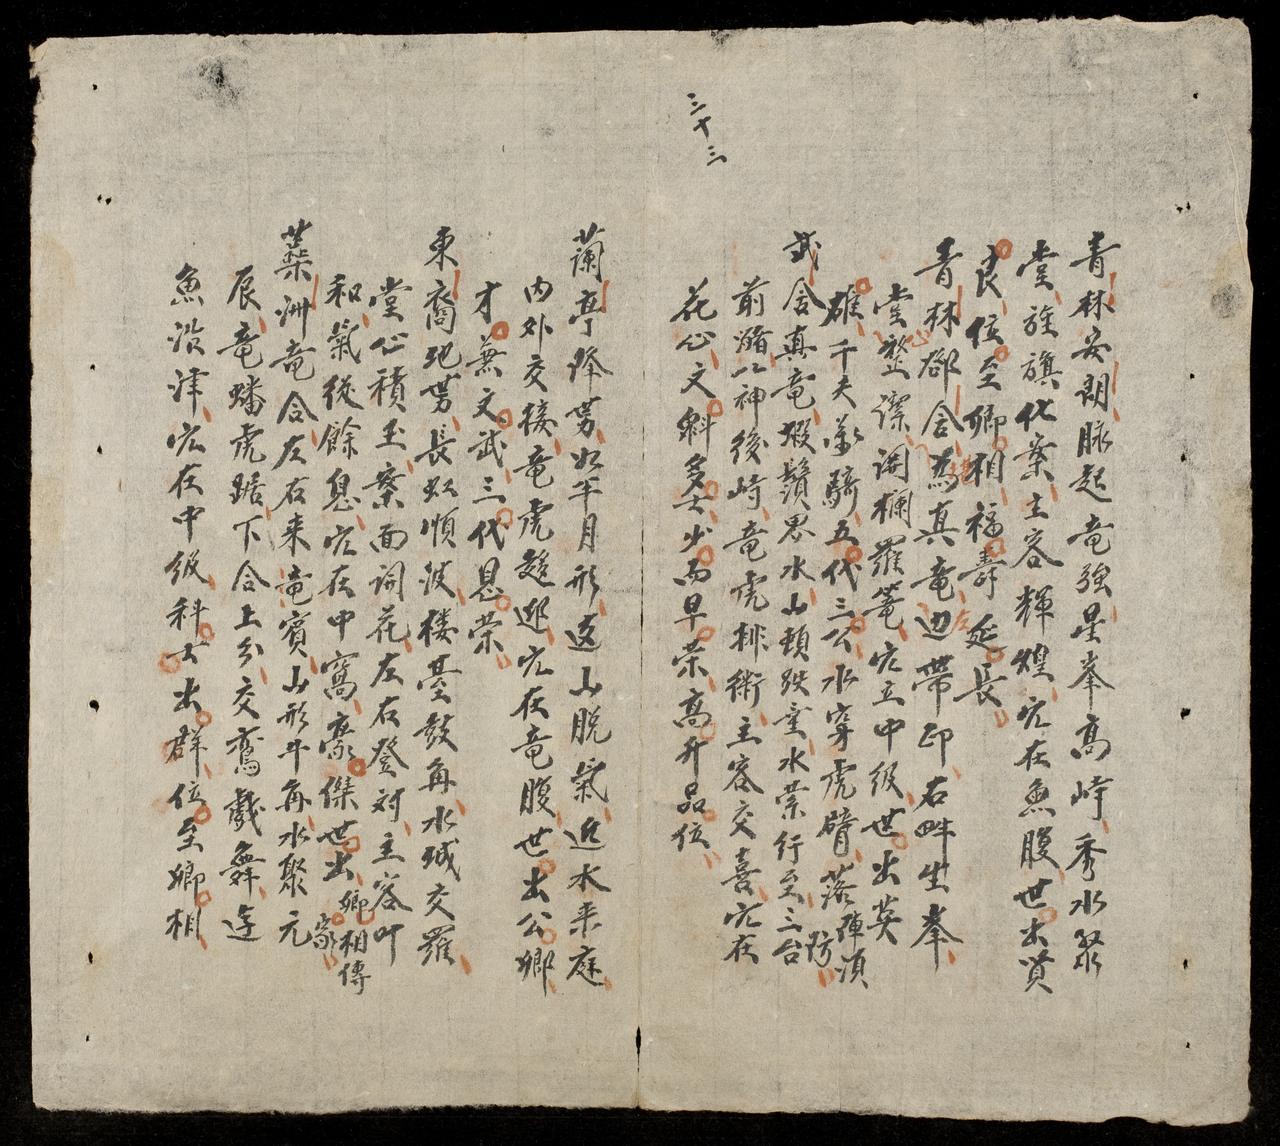 三十三
青林安朗脉起竜強星峯高峙秀水聚
堂旌旗化案主客輝煌穴在魚腹世出賢
良位至卿相福壽延長
青林郤舍為真竜边帶印右畔生峯
堂整潔闌欄羅篭穴立中级世出英
心
左
雄千夫萬騎五代三公水穿虎臂落陣須
防
武舍真竜蝦鬚界水山頓跌重水縈行至三台
前瀦以神後峙竜虎排衙主客交喜穴在
花心文魁多士少而早荣高升品位
蘭亭降势如半月形边山脱氣近水来庭
内外交接竜虎趨迎穴在竜腹世出公卿
才兼文武三代恩荣
東裔圯势長虹順波楼臺鼓角水城交羅
堂心積玉案面詞花左右登对主客叶
和氣從餘息穴在中窩豪傑世出卿相傳
家
蘂洲竜合左右来竜賓山形斗角水聚元
辰竜蟠虎踞下合上分交鴦戲舞逢
魚沿津穴在中级科士出群位至卿相